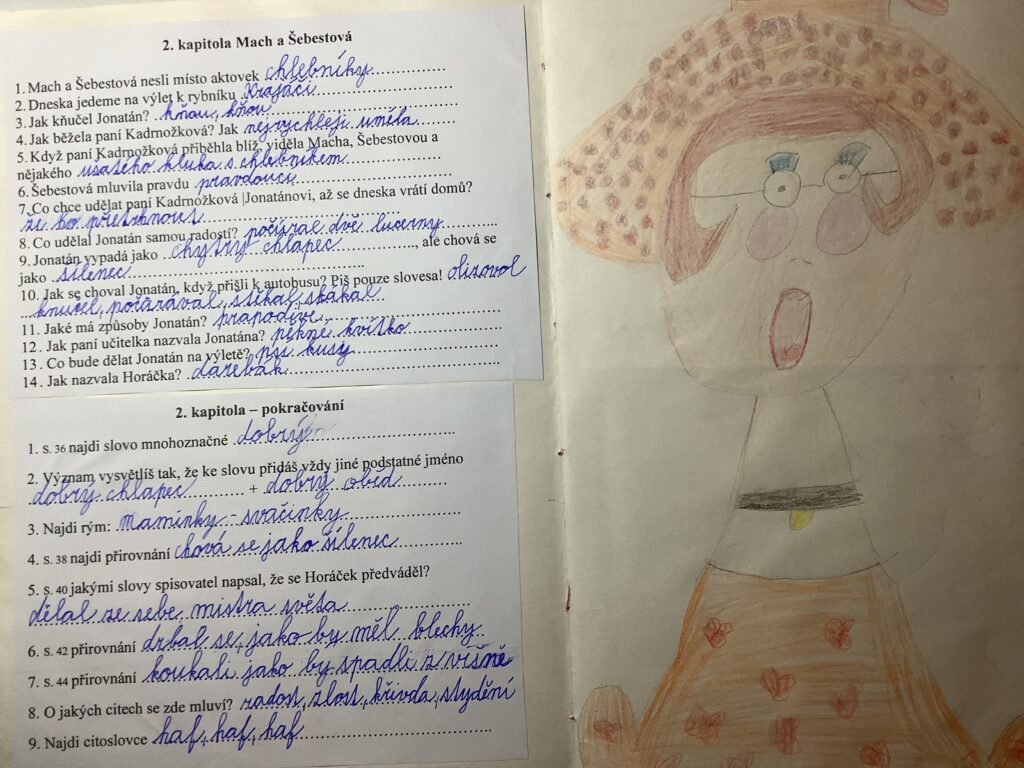 2. kapitola Mach a Šebestová
1. Mach a Šebestová nesli místo aktovek chlebníky
2. Dneska jedeme na výlet k rybníku Krajáči
3. Jak kňučel Jonatán? kňou, kňou
4. Jak běžela paní Kadrnožková? Jak nejrychleji uměla
5. Když paní Kadrnožková přiběhla blíž, viděla Macha, Šebestovou a
nějakého ušatého kluka s chlebníkem
6. Šebestová mluvila pravdu pravdoucí
7. Co chce udělat paní Kadrnožková |Jonatánovi, až se dneska vrátí domů?
že ho přetrhnout
8. Co udělal Jonatán samou radostí? počůral dvě lucerny
9. Jonatán vypadá jako chytrý chlapec, ale chová se
jako šílenec
10. Jak se choval Jonatán, když přišli k autobusu? Piš pouze slovesa! olizoval
knučel, počůrával, štěkal, skákal
11. Jaké má způsoby Jonatán? prapodivé
12. Jak paní učitelka nazvala Jonatána? pěkné kvítko
13. Co bude dělat Jonatán na výletě? psí kusy
14. Jak nazvala Horáčka? darebák
2. kapitola – pokračování
1. s.36 najdi slovo mnohoznačné dobrý
2. Význam vysvětlíš tak, že ke slovu přidáš vždy jiné podstatné jméno
dobrý chlapec + dobrý oběd
3. Najdi rým: maminky - svačinky
4. s.38 najdi přirovnání chová se jako šílenec
5. s.40 jakými slovy spisovatel napsal, že se Horáček předváděl?
dělal ze sebe mistra světa
6. s.42 přirovnání drbal se, jako by měl blechy
7. s.44 přirovnání koukali jako by spadli z višně
8. O jakých citech se zde mluví? radost, zlost, křivda, stydění
9. Najdi citoslovce haf, haf, haf